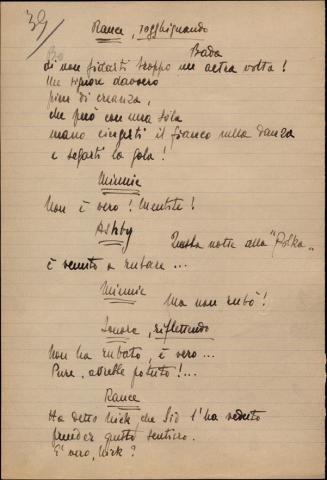 39)
Rance, sogghignando
Bada
di non fidarti troppo un'altra volta!
Un signore davvero
pien di creanza,
che può con una sola
mano cingerti il fianco nella danza
e segarti la gola!
Minnie
Non è vero! Mentite!
Ashby
Questa notte alla "Polka"
è venuto a rubare...
Minnie
Ma non rubò!
Sonora, riflettendo
Non ha rubato, è vero...
Pure, avrebbe potuto!...
Rance
Ha detto Nick che Sid l'ha veduto
prender questo sentiero.
È vero, Nick?